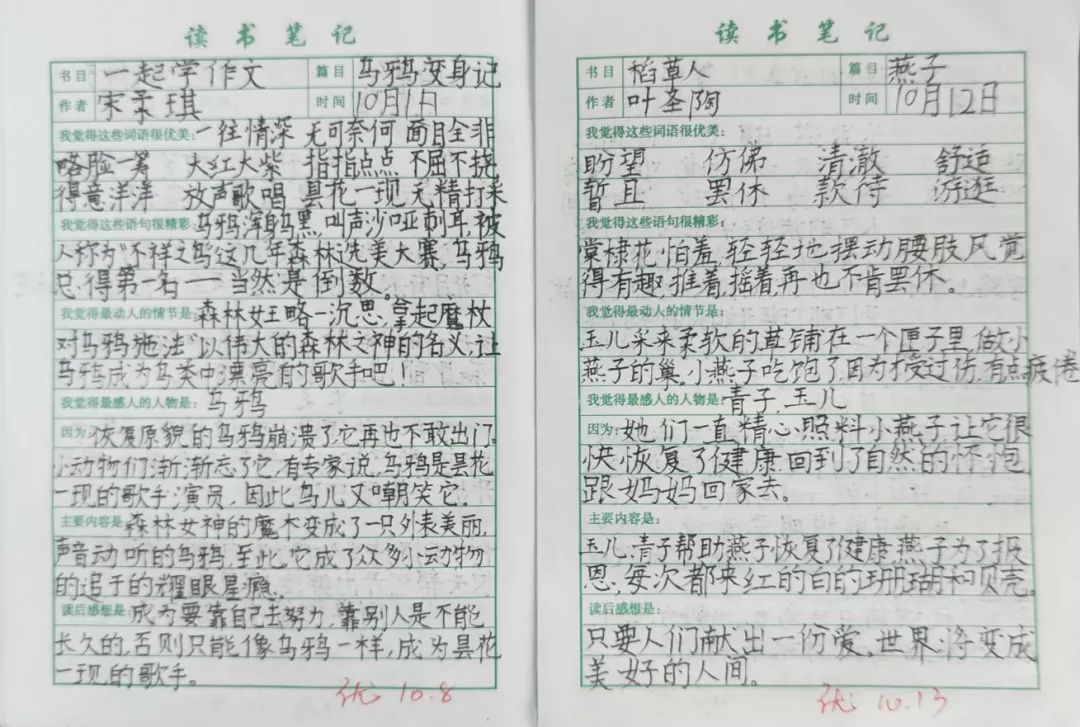 读书笔记
书目 一起学作文 篇目 乌鸦变身记
作者 宋柔琪 时间 10月1日
我觉得这些词语很优美: 一往情深 无可奈何 面目全非
略脸一筹 大红大紫 指指点点 不屈不挠
得意洋洋 放声歌唱 昙花一现 无精打采
我觉得这些语句很精彩: 乌鸦浑身乌黑,叫声沙哑刺耳,被
人称为“不祥之鸟”这几年森林选美大赛,乌鸦
总得第一名——当然是倒数。
我觉得最动人的情节是: 森林女王略一沉思,拿起魔杖
对乌鸦施法“以伟大的森林之神的名义,让
乌鸦成为鸟类中漂亮的歌手吧!
我觉得最感人的人物是: 乌鸦
因为: 恢复原貌的乌鸦崩溃了它再也不敢出门。
小动物们渐渐忘了它,有专家说,乌鸦是昙花
一现的歌手演员,因此鸟儿又嘲笑它.
主要内容是: 森林女神的魔术变成了一只外表美丽,
声音动听的乌鸦,至此,它成了众多小动物
的追于的耀眼星瘾.
读后感想是: 成为要靠自己去努力,靠别人是不能
长久的,否则只能像乌鸦一样,成为昙花
一现的歌手。
优 10.8
读书笔记
书目 稻草人 篇目 燕子
作者 叶圣陶 时间 10月12日
我觉得这些词语很优美:
盼望 仿佛 清澈 舒适
暂且 罢休 款待 游逛
我觉得这些语句很精彩:
棠棣花怕羞,轻轻地摆动腰肢风觉
得有趣,推着,摇着再也不肯罢休。
我觉得最动人的情节是:
玉儿采来柔软的草铺在一个匣子里,做小
燕子的巢。小燕子吃饱了,因为才受过伤,有点疲倦
我觉得最感人的人物是: 青子,玉儿
因为: 她们一直精心照料小燕子,让它很
快恢复了健康,回到了自然的怀抱
跟妈妈回家去。
主要内容是:
玉儿,青子帮助燕子恢复了健康,燕子为了报
恩,每次都来红的白的珊瑚和贝壳。
读后感想是:
只要人们献出一份爱。世界将变成
美好的人间。
优 10.13